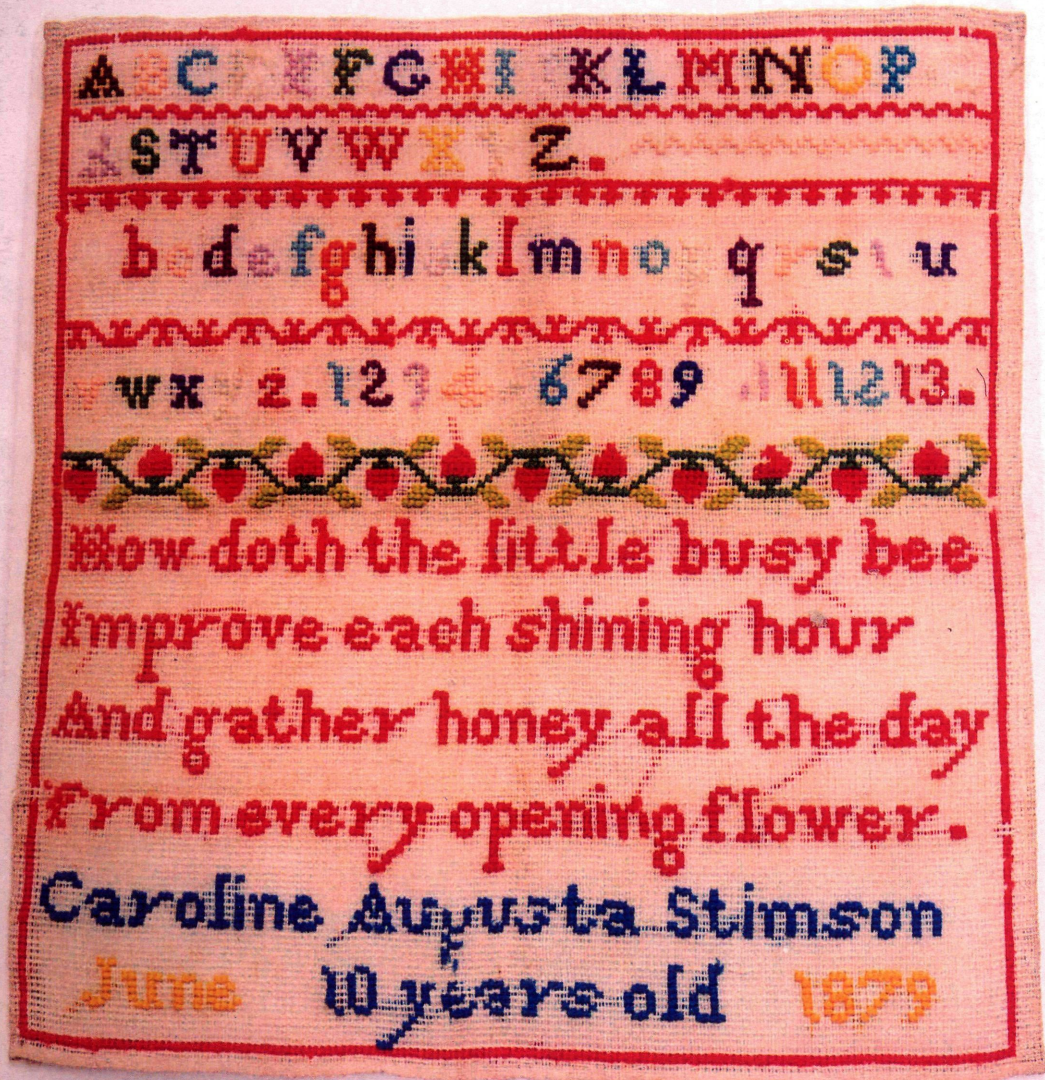 A B C D E F G H I K L M N O P
R S T U V W X Y Z.
b c d e f g h i k l m n o p q r s t u
v w x y z. 1 2 3 4 5 6 7 8 9 11 12 13.
How doth the little busy bee
Improve each shining hour
And gather honey all the day
From every opening flower.
Caroline Augusta Stimson
June 10 years old 1879